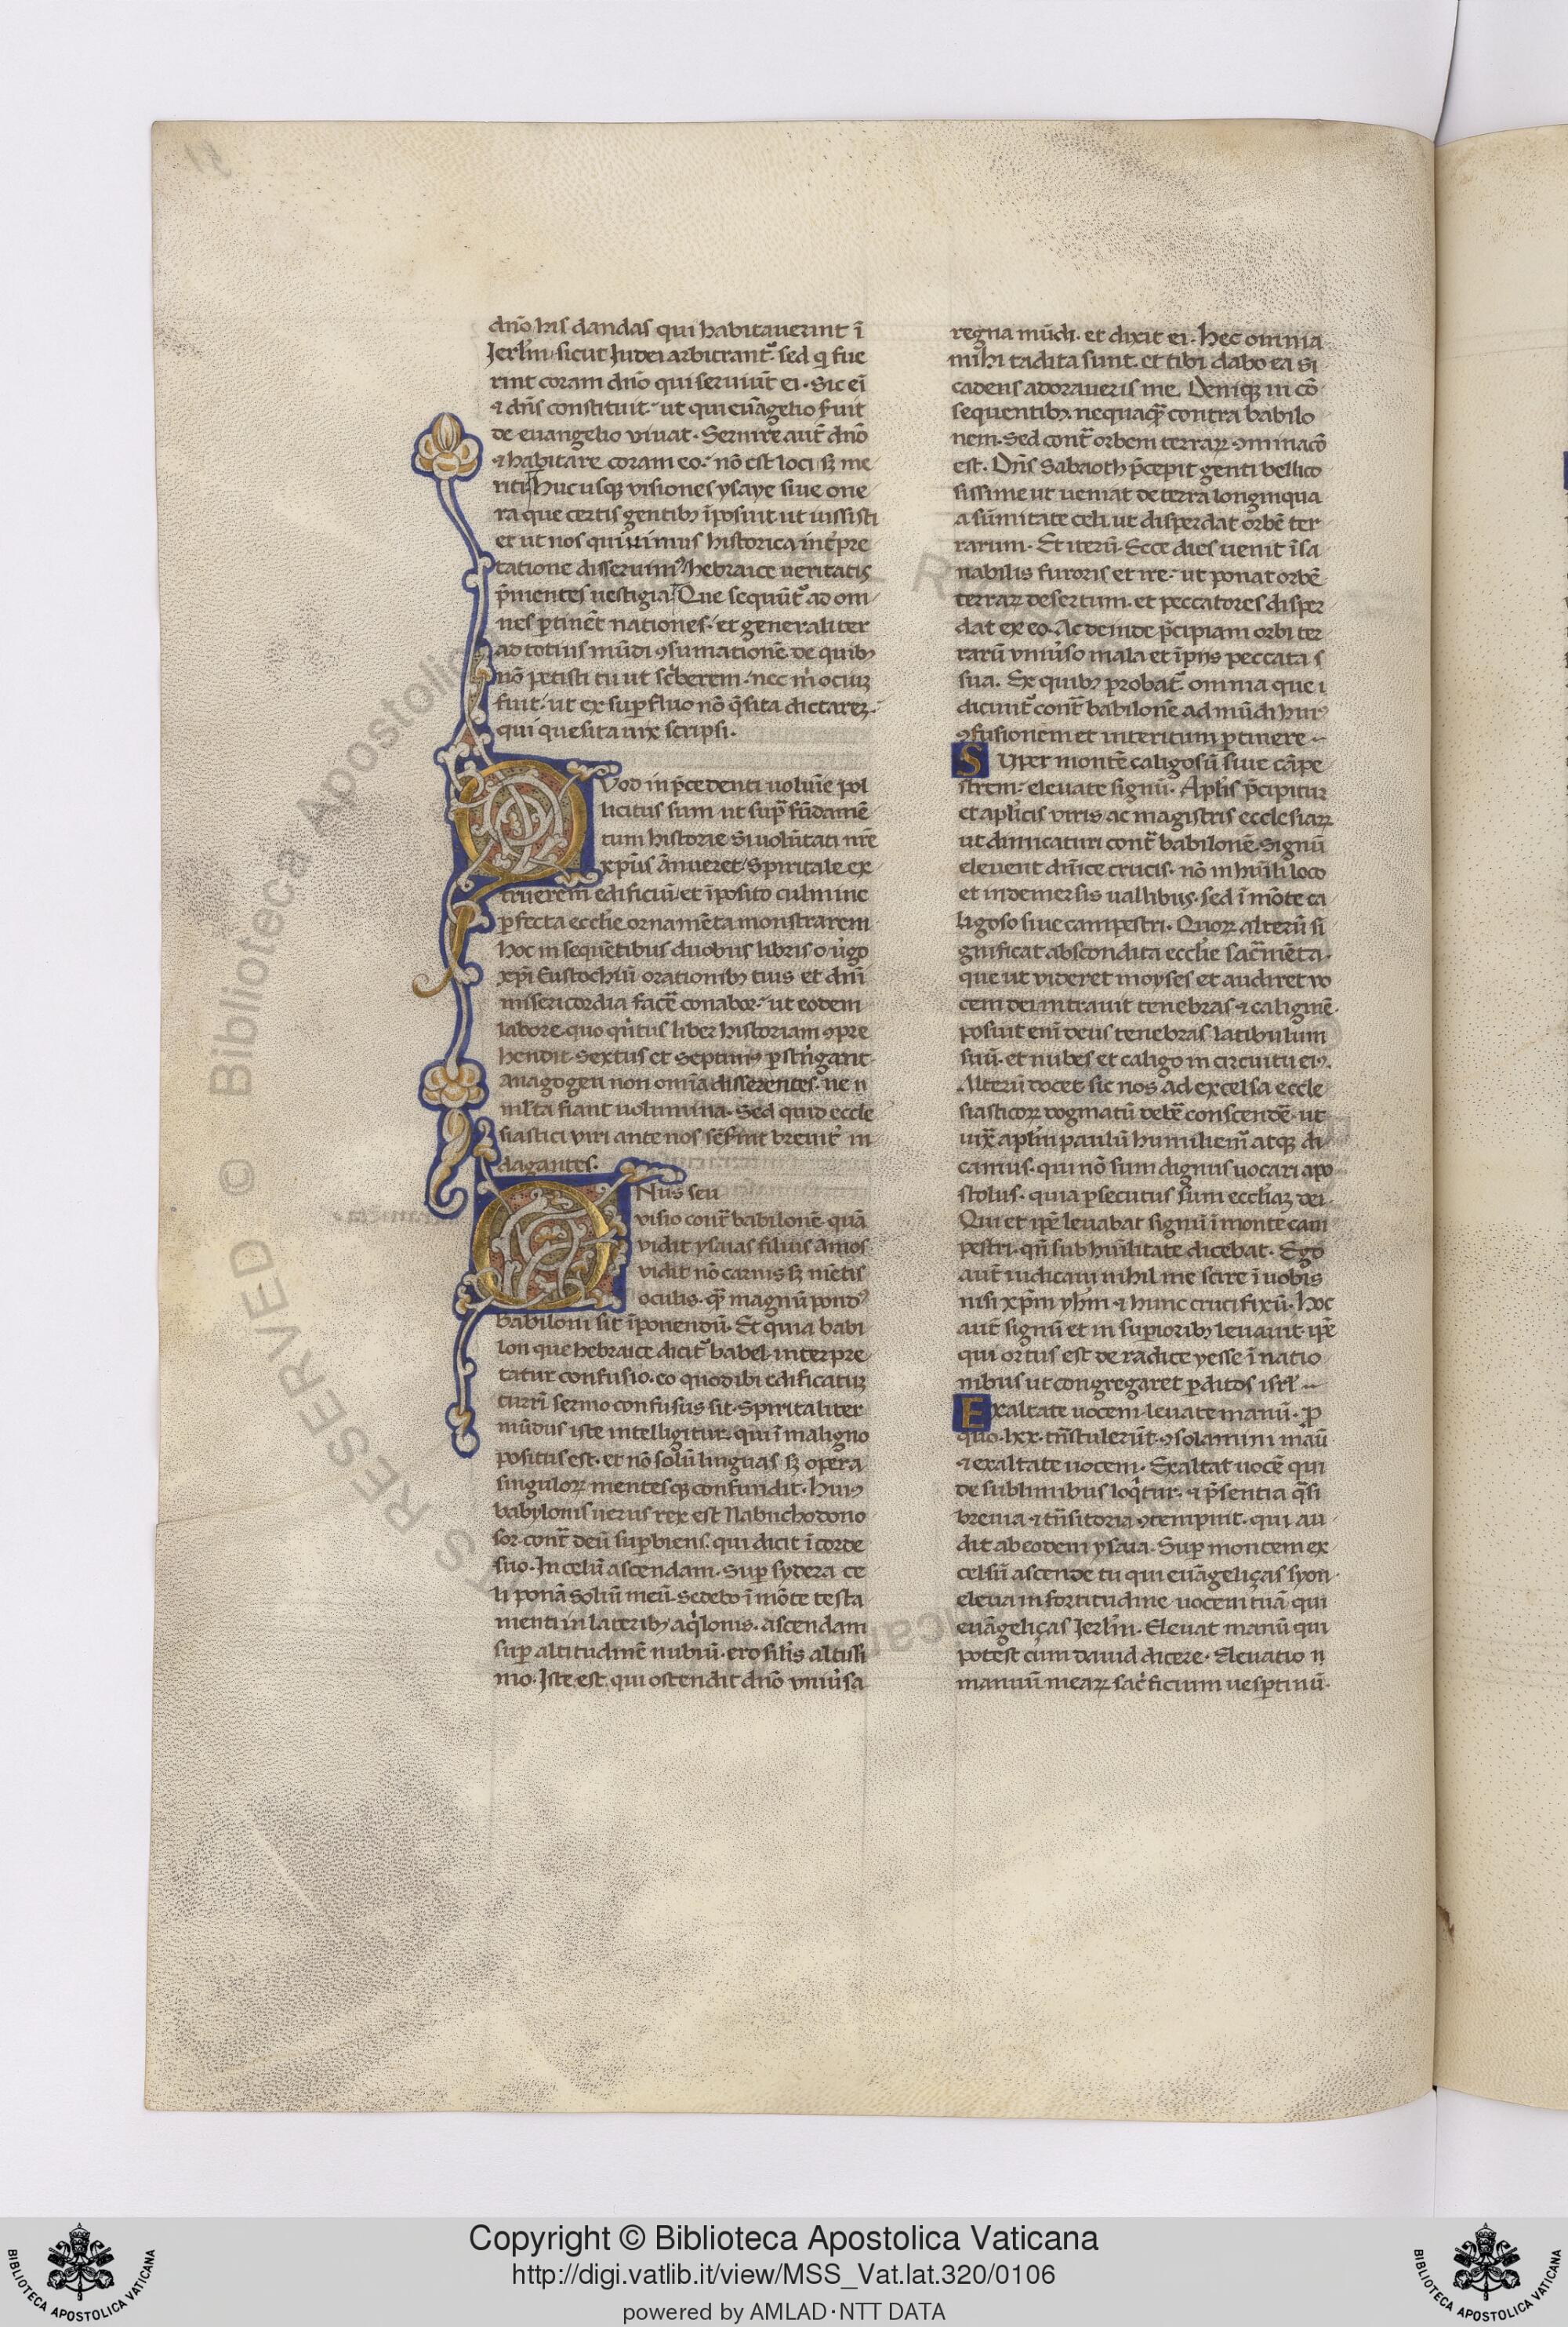 dño his dandas qui habitauerint ĩ
Jerlm̃ sicut Iudei arbitrant᷑. sed q̃ fue
rint coram dño qui seruiũt ei. Sic eĩ
⁊ dñs constituit. ut qui euãgelio seruit
de euangelio viuat. Seruire aut̃ dño
⁊ habitare coram eo. nõ est loci sꝫ me
riti. Huc usqꝫ visiones ysaye siue one
ra que certis gentibꝫ ĩposuit ut iussisti
et ut nos quiuimus historica int̃pre
tatione disseruimꝰ hebraice ueritatis
p̃mentes uestigia. Que sequũt᷑ ad om
nes ꝑtinẽt nationes. et generaliter
ad totius mũdi ꝯsumationẽ de quibꝫ
nõ petisti tu ut sc̃berem. nec m̃ ociuꝫ
fuit. ut ex suꝑfluo nõ q̃sita dictareꝫ.
qui quesita uix scripsi.
Qvod in p̃cedenti uolũie pol
licitus sum ut sup̃ fũdamẽ
tum historie si uolũtati nr̃e
xp̃us ãnueret spiritale ex
truerem edificiũ et ĩposito culmine
ꝑfecta ecclie ornamẽta monstrarem
hoc in sequẽtibus duobus libris o ũgo
xp̃i Eustochiũ orationibꝫ tuis et dñi
misericordia facẽ conabor. ut eodem
labore quo qũtus liber historiam ꝯpre
hendit. Sextus et septimꝰ ꝑstrigant
anagogen non omĩa disserentes. ne ĩ
ml̃ta fiant uolumina. Sed quid eccle
siastici viri ante nos sẽserint breuit̃ in
dagantes.
ONus seu
visio cont̃ babilonẽ quã
vidit ysaias filius amos
vidit nõ carnis sꝫ mẽtis
oculis. q̃ magnũ pondꝰ
babiloni sit ĩponendũ. Et quia babi
lon que hebraice dicit᷑ babel interpre
tatur confusio. eo quod ibi edificatiũ
turrĩ sermo confusus sit. Spiritaliter
mũdus iste intelligitur. qui ĩ maligno
positus est. et nõ solũ linguas sꝫ opera
singuloꝝ mentesqꝫ confundit. Huiꝰ
babylonis uerus rex est Nabuchodono
sor cont̃ deũ suꝑbiens. qui dicit ĩ corde
suo. In celũ ascendam. Suꝑ sydera ce
li ponã soliũ meũ. Sedebo ĩ mõte testa
menti in lateribꝫ aq̃lonis. ascendam
suꝑ altitudinẽ nubiũ. ero sil̃is altissi
mo. Iste est qui ostendit dño vniũsa
regna mũdi. et dixit ei. Hec omnia
mihi tadita sunt. et tibi dabo ea si
cadens adoraueris me. Deniqꝫ in cõ
sequentibꝫ. nequaq̃ contra babilo
nem. Sed cont̃ orbem terraꝝ ꝯminacõ
est. Dñs Sabaoth p̃cepit genti bellico
sissime ut ueniat de terra longinqua
a sũmitate celi. ut disperdat orbẽ ter
rarum. Et iterũ. Ecce dies uenit ĩsa
nabilis furoris et ire. ut ponat orbẽ
terraꝝ desertum. et peccatores disper
dat ex eo. Ac deinde p̃cipiam orbi ter
rarũ vniũso mala et ĩpijs peccata s
sua. Ex quibꝫ probat᷑ omnia que ĩ
dicunt᷑ cont̃ babilonẽ ad mũdi huiꝰ
ꝯfusionem et interitum ꝑtinere
Svper montẽ caligosũ siue cãpe
strem. eleuate signũ. Apl̃is p̃cipitur
et apl̃icis viris ac magistris ecclesiaꝝ
ut dimicaturi cont̃ babilonẽ. Signũ
eleuent dñice crucis. nõ in hũili loco
et in demersis uallibus. sed ĩ mõte ca
ligoso siue campestri. Quoꝝ alterũ si
gnificat abscondita eccl̃ie sac̃mẽta.
que ut videret moyses et audiret vo
cem dei intrauit tenebras ⁊ caliginẽ.
posuit eni deus tenebras latibulum
suũ. et nubes et caligo in circuitu eiꝰ.
Alterũ docet sic nos ad excelsa eccle
siasticoꝝ dogmatũ debẽ conscendẽ. ut
uix̃ apl̃m paulũ humiliem᷑ atqꝫ di
camus. qui nõ sum dignus uocari apo
stolus. quia ꝑsecutus sum eccl̃iaꝫ dei.
Qui et ip̃e leuabat signũ ĩ monte cam
pestri. qñ sub hũilitate dicebat. Ego
aut̃ iudicaui nihil me scire ĩ uobis
nisi xp̃m yhm̃ ⁊ hunc crucifixũ. Hoc
aut̃ signũ et in suꝑioribꝫ leuauit. ip̃e
qui ortus est de radice yesse ĩ natio
nibus ut congregaret ꝑditos isrl̃
Exaltate uocem. leuate manũ. ꝓ
quo. lxx. tñstulerũt. ꝯsolamini maũ
⁊ exaltate uocem. Exaltat uocẽ qui
de sublimibus loq̃tur. ⁊ p̃sentia q̃si
breuia ⁊ tñsitoria ꝯtempnit. qui au
dit ab eodem ysaia. Suꝑ montem ex
celsũ ascende tu qui euãgeliças syon.
eleua in fortitudine uocem tuã qui
euãgeliças Jerlm̃. Eleuat manũ qui
potest cum dauid dicere. Eleuatio
manuũ meaꝝ sac̃ficium uesꝑtinũ.
Copyright © Biblioteca Apostolica Vaticana
http://digi.vatlib.it/view/MSS_Vat.lat.320/0106
powered by AMLAD·NTT DATA
BIBLIOTECA APOSTOLICA VATICANA
BIBLIOTECA APOSTOLICA VATICANA